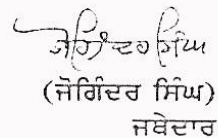 ਜੋਗਿੰਦਰ ਸਿੰਘ
(ਜੋਗਿੰਦਰ ਸਿੰਘ)
ਜਥੇਦਾਰ